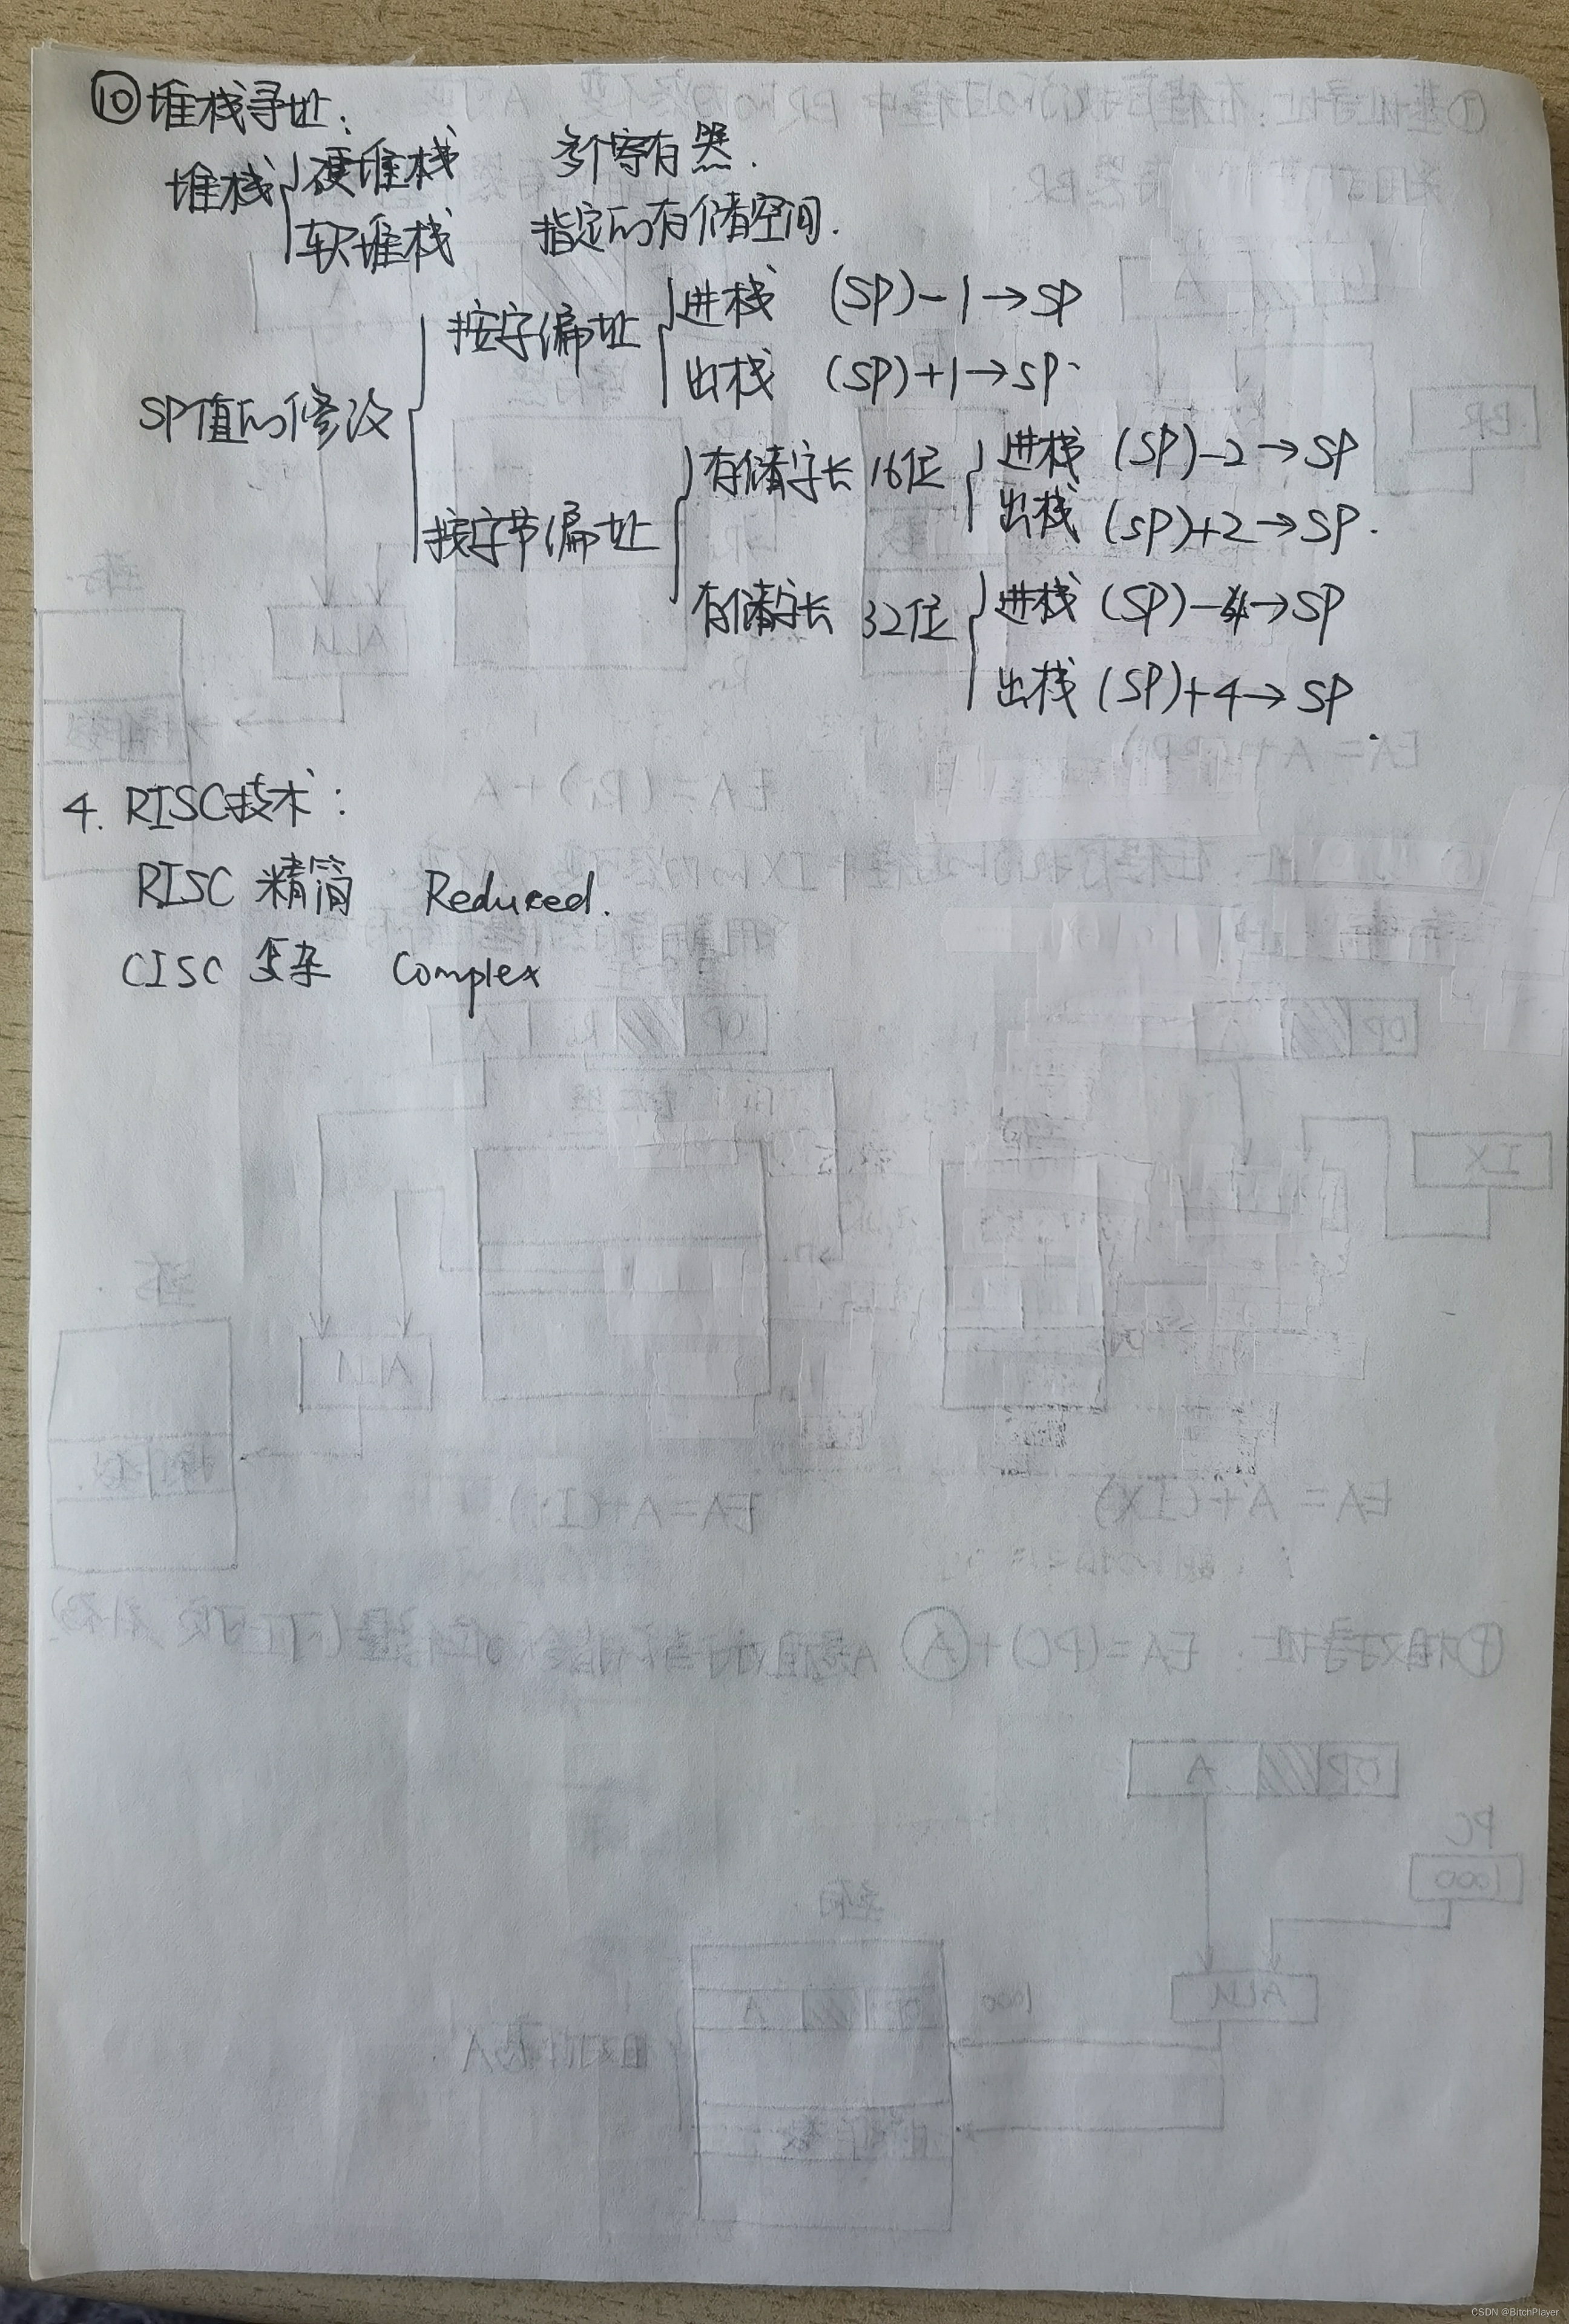 ⑩堆栈寻址:
堆栈 硬堆栈 多个寄存器.
软堆栈 指定的存储空间.
SP值的修改
按字编址 进栈 (SP)-1→SP
出栈 (SP)+1→SP.
按字节编址
存储字长 16位 进栈 (SP)-2→SP
出栈 (SP)+2→SP.
存储字长 32位 进栈 (SP)-4→SP
出栈 (SP)+4→SP.
4. RISC技术:
RISC 精简 Reduced.
CISC 复杂 Complex
CSDN @BitchPlayer